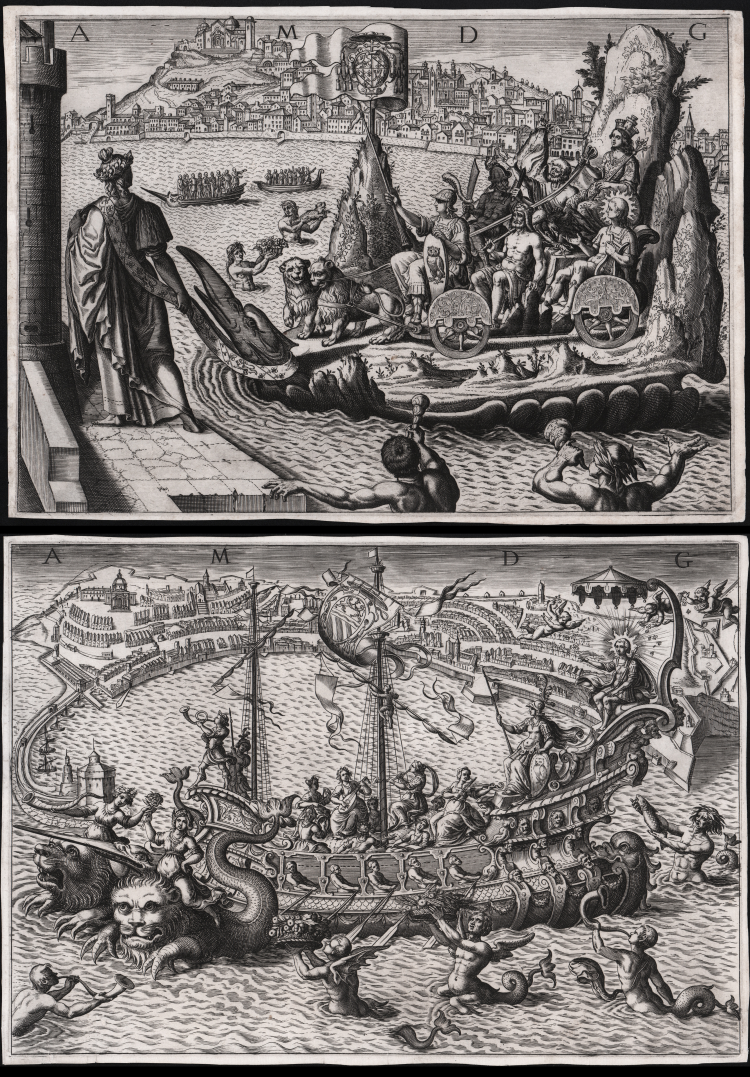 A M D G
A M D G